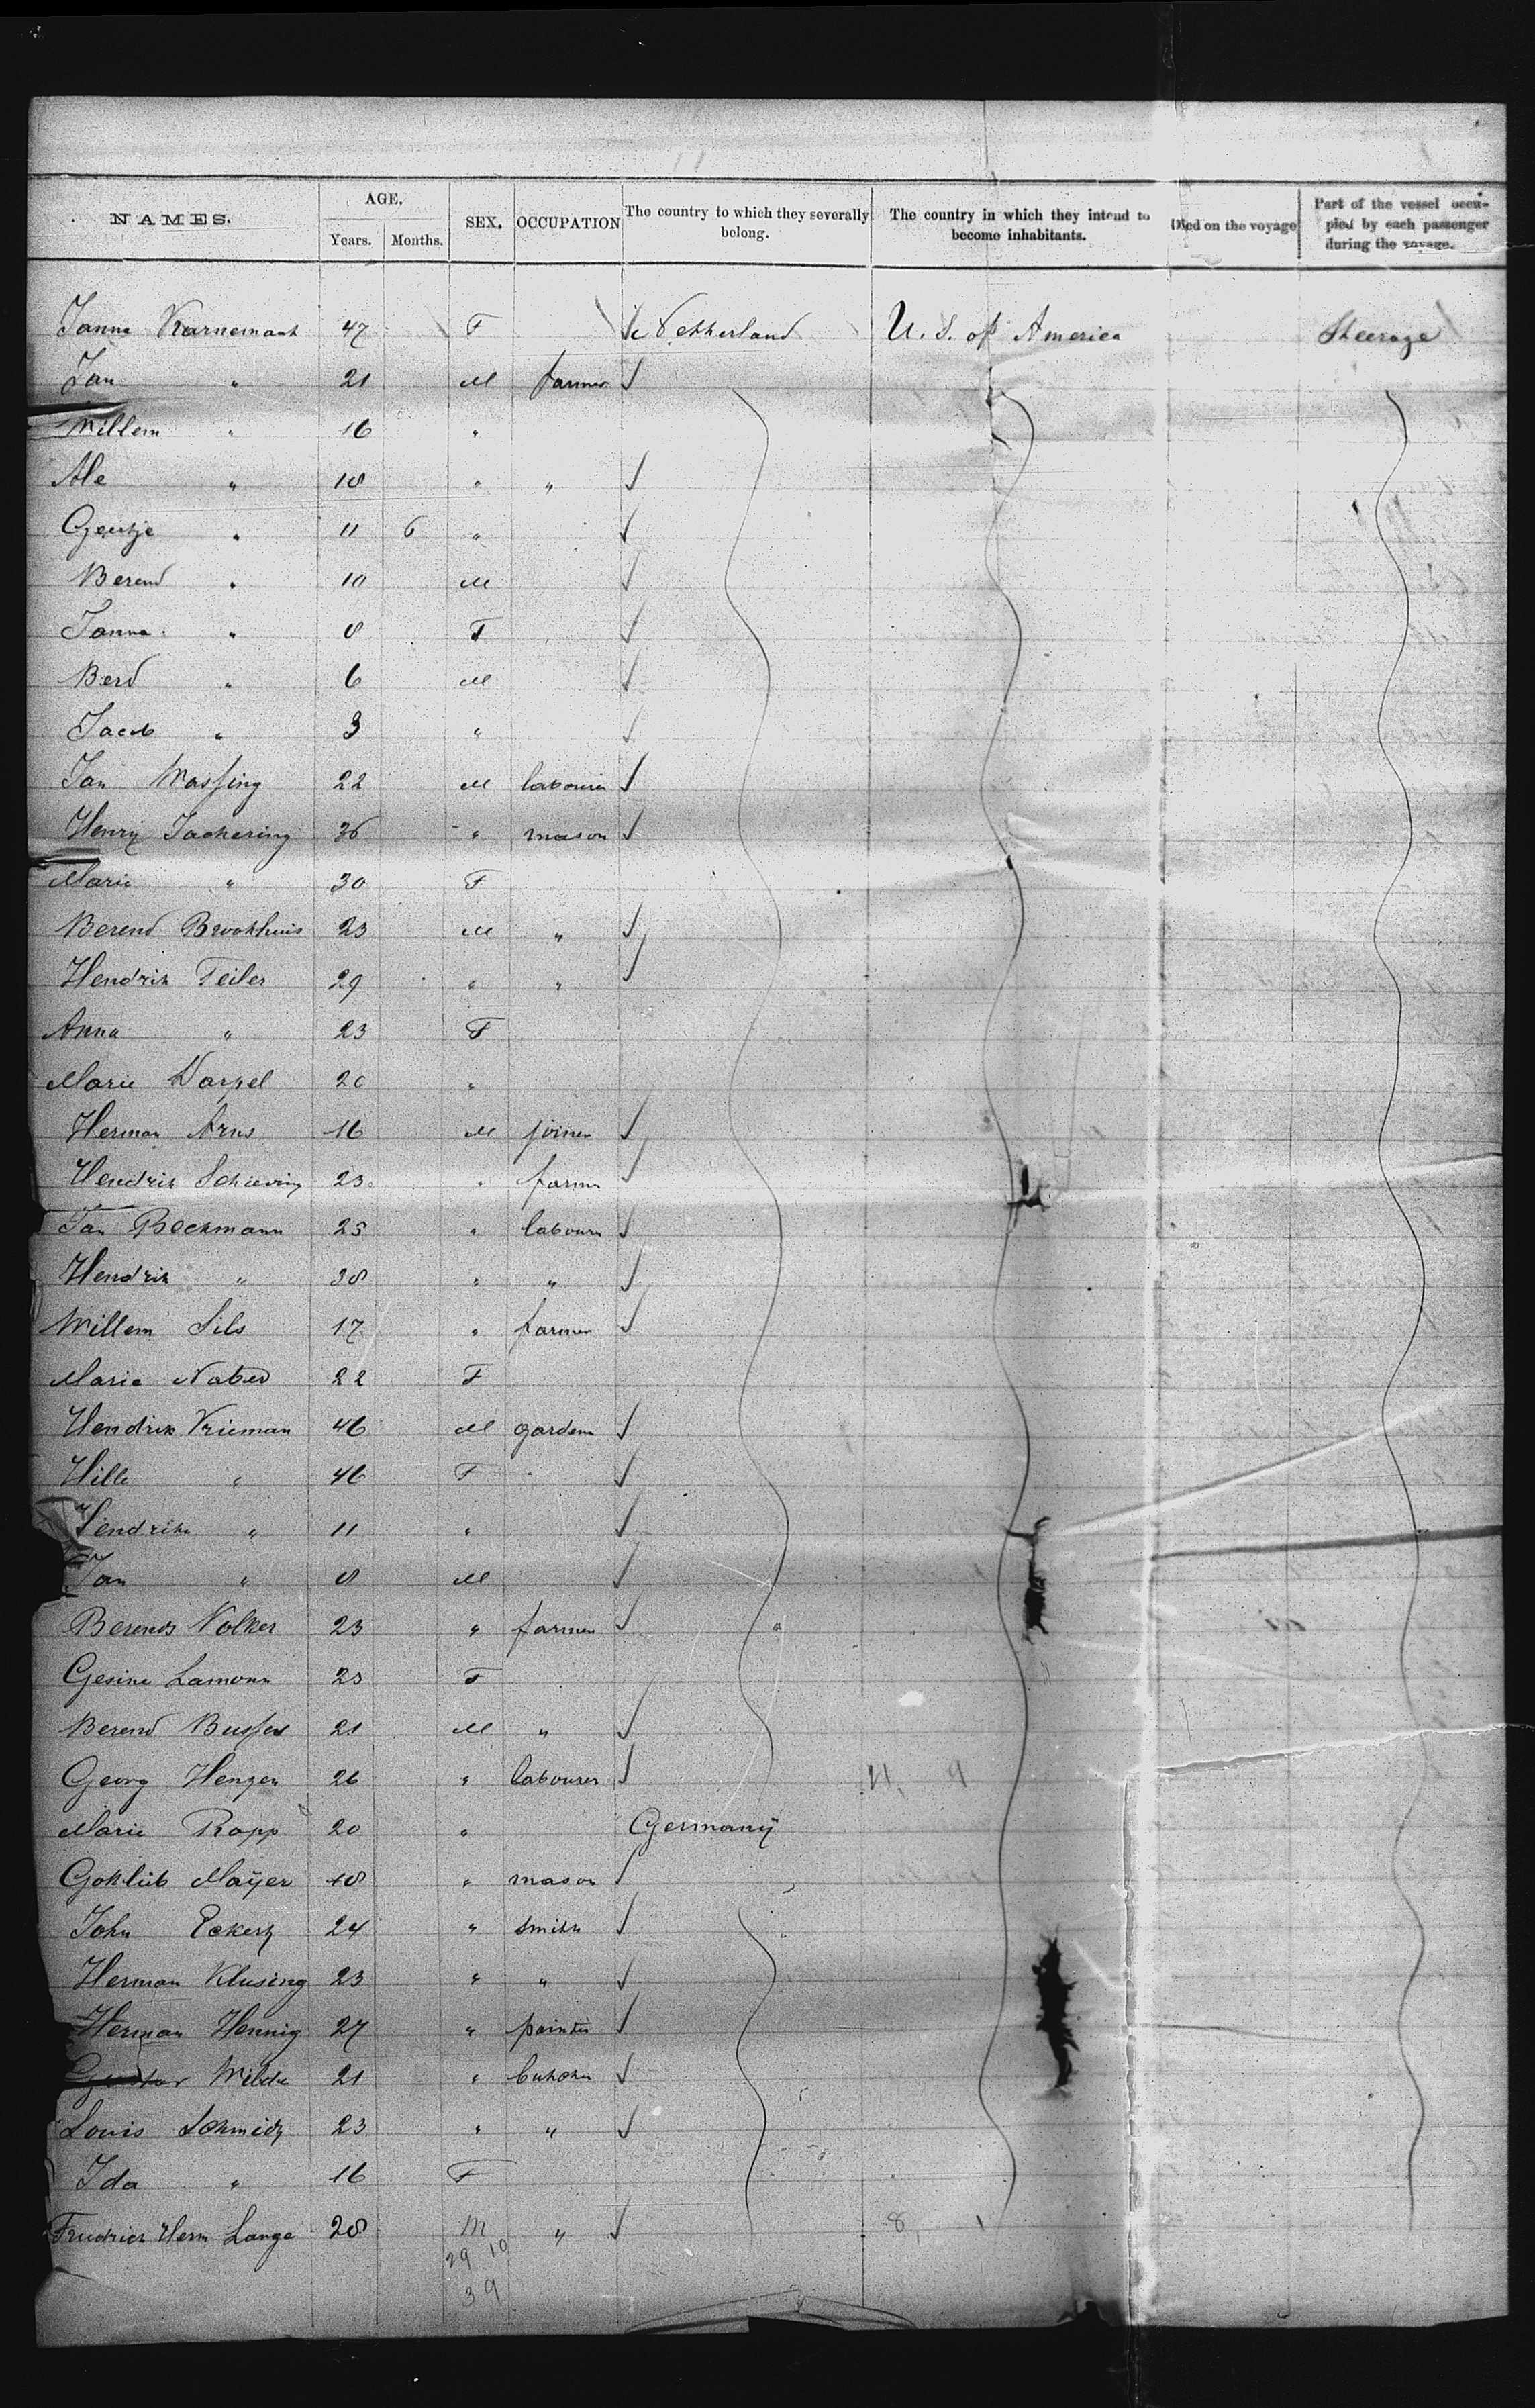 NAMES. AGE. SEX. OCCUPATION The country to which they severally belong. The country in which they intend to become inhabitants. Died on the voyage Part of the vessel occupied by each passenger during the voyage.
Years. Months.
Janna 47 F Netherland U. S. of America Steerage
Jan " 21 M farmer
Willem " 16 "
Ale " 18 " "
Geertje " 11 6 "
Berend " 10 M
Janna " 8 F
Berd " 6 M
Jacob " 3 "
Jan Wassing 22 M labourer
Henry Jackering 36 " mason
Marie " 30 F
Berend Brookhuis 23 M "
Hendrik Feiler 29 " "
Anna " 23 F
Marie 20 "
Herman Arns 16 M joiner
Hendrik Schieving 23 " farmer
Jan Beckmann 25 " labourer
Hendrik " 38 " "
Willem Sils 17 " farmer
Maria Naber 22 F
Hendrik Vrieman 46 M garden
Hille " 46 F
Hendrika " 11 "
Jan " 8 M
Berends Volker 23 " farmer "
Gesine Lamann 23 F
Berend Busser 21 M "
Georg Hengen 26 " labourer
Marie Rapp 20 " Germany
Gottlieb Mayer 18 " mason
John Eckert 24 " smith
Herman Klusing 23 " "
Herman Hennig 27 " painter
Gustav Wilde 21 " butcher
Louis Schmidt 23 " "
Ida " 16 F
Friedrich Herm Lange 28 M "
29 10
39